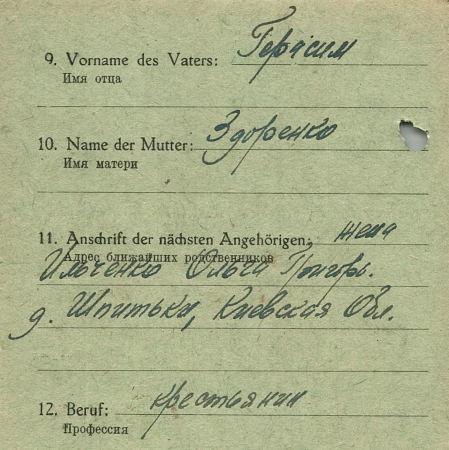 9. Vorname des Vaters: Герасим
Имя отца
10. Name der Mutter: Здоренко
Имя матери
11. Anschrift der nächsten Angehörigen: жена
Адрес ближайших родственников
Ильченко Ольга Григорь.
д. Шпитьки, Киевская Обл.
12. Beruf: крестьянин
Профессия